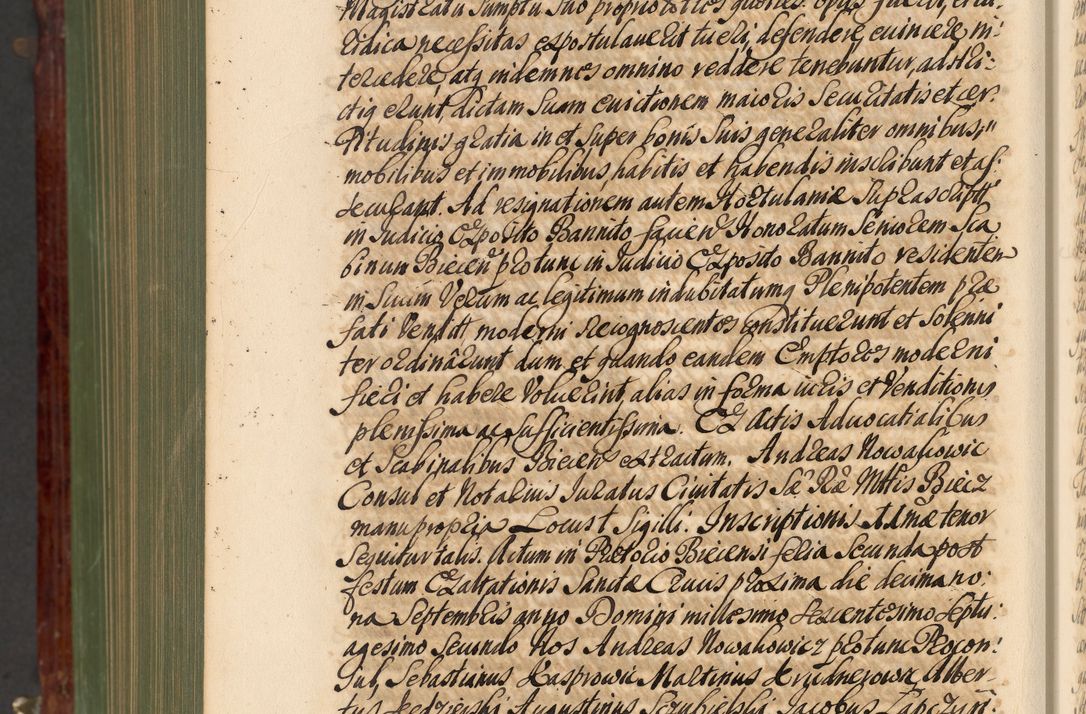 Magistratu Sumptu Suo proprio toties quoties opus fuerit, et iu
ridica necessitas expostulaverit tueri, defendere, evincere, in:
tercedere, atq indemnes omnino reddere tenebuntur, adstri:
ctiq erunt, dictam Suam evictionem maioris Securitatis et cer:
titudinis gratia in et Super bonis Suis generaliter omnibus,
mobilibus et immobilibus, habitis et habendis inscribunt et as:
securant. Ad resignationem autem Hortulaniæ Suprascriptæ
in Judicio Exposito Bannito Honoratum Seniorem Sca
binum Biecen protunc in Judicio Exposito Bannito residenten
in Suum Verum ac legitimum indubitatumq Plenipotentem præ
fati Vendit moderni Recognoscentes constituerunt et Solenni
ter ordinârunt dum et quando eandem Emptores moderni
fieri et habere Voluerint, alias in forma iuris et Venditionis
plenissima ac sufficientissima. Ex Actis Advocatialibus
et Scabinalibus Biecen extractum. Andreas Nowakowic
Consul et Notarius Juratus Civitatis Sæ Ræ Mttis Biecz
manu propria Locus t Sigilli. Inscriptionis Admæ tenor
Sequitur talis. Actum in Prætorio Biecensi feria Secunda post
festum Exaltationis Sanctæ Crucis proxima die decima no:
na Septembris anno Domini millesimo Sexcentesimo Septu:
agesimo Secundo Nos Andreas Nowakowicz protunc Procon:
Sul, Sebastianus Kasprowic Martinus Krudnerowic Alber
tus Augustinus Jacobus